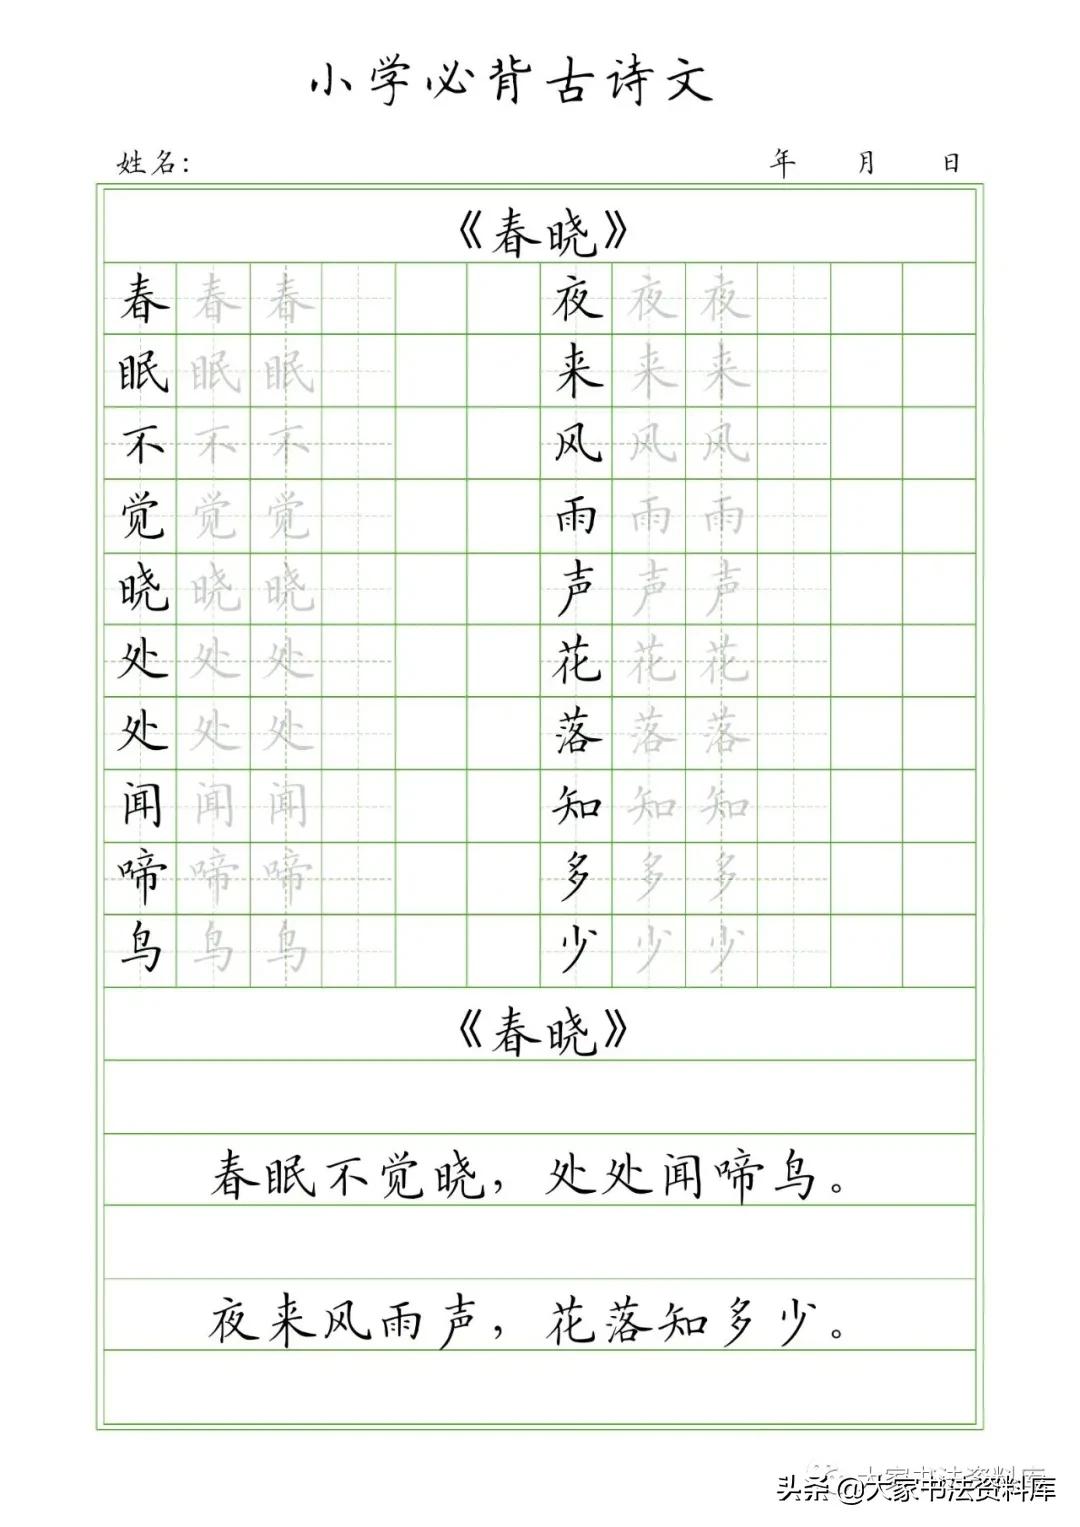 小学必背古诗文
姓名: 年 月 日
《春晓》
春 春 春 夜 夜 夜
眠 眠 眠 来 来 来
不 不 不 风 风 风
觉 觉 觉 雨 雨 雨
晓 晓 晓 声 声 声
处 处 处 花 花 花
处 处 处 落 落 落
闻 闻 闻 知 知 知
啼 啼 啼 多 多 多
鸟 鸟 鸟 少 少 少
《春晓》
春眠不觉晓，处处闻啼鸟。
夜来风雨声，花落知多少。
大家书法资料库
头条 @大家书法资料库